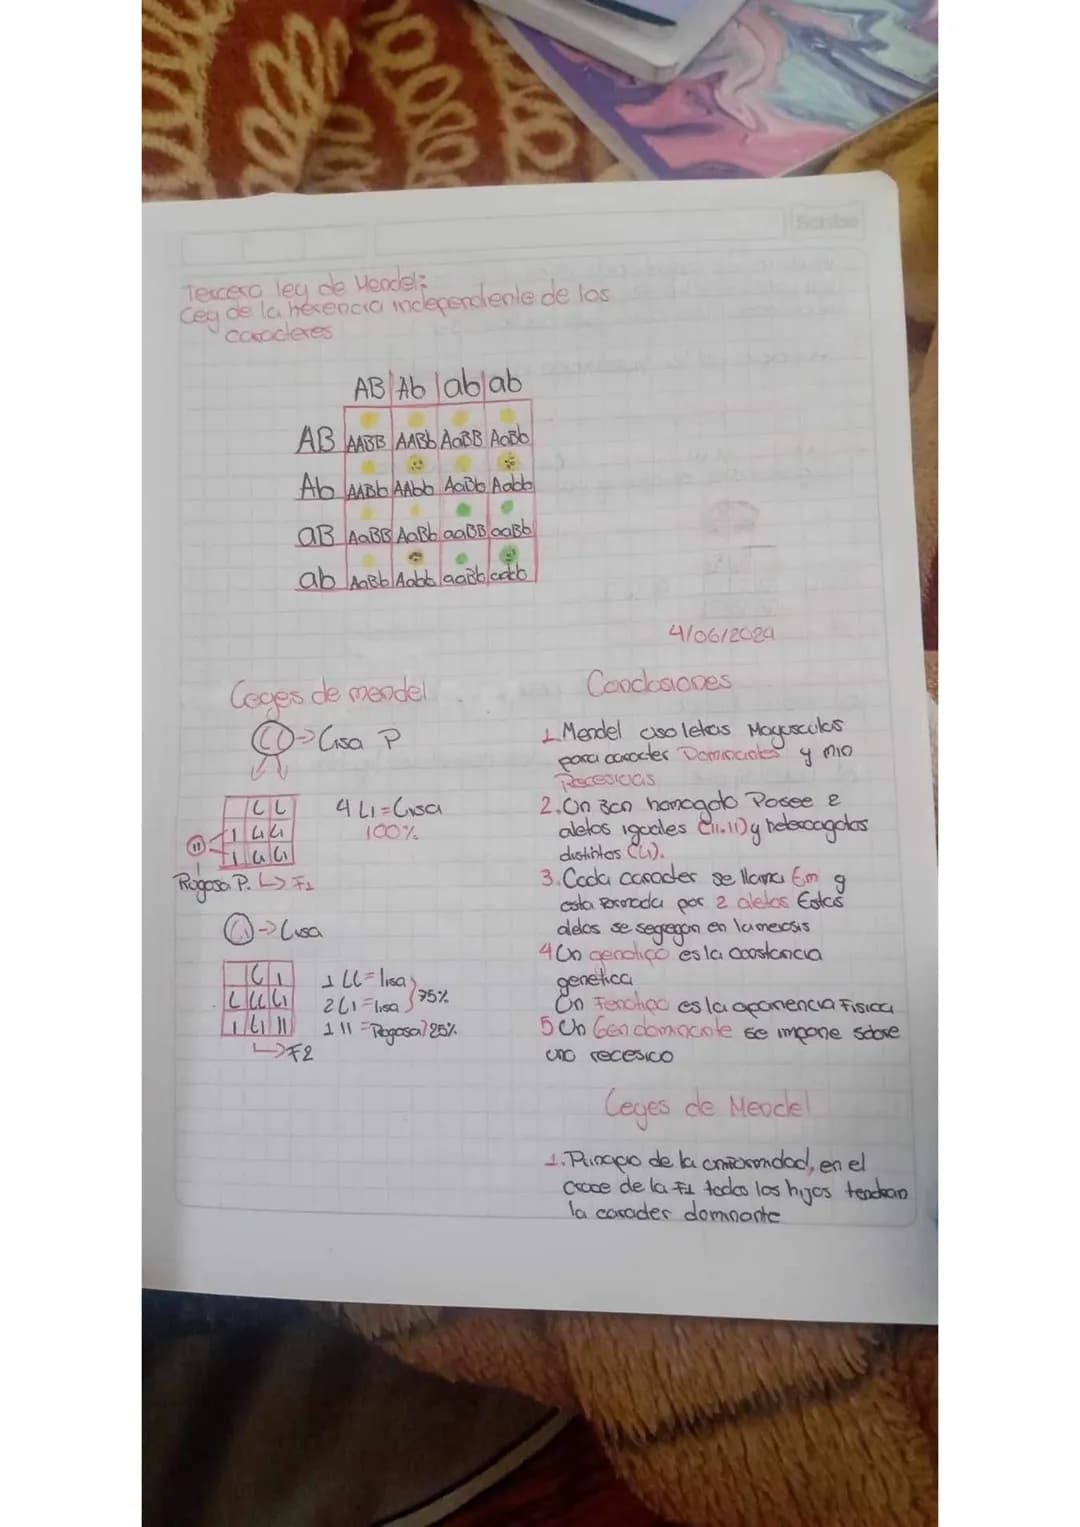 Scribe
Tercera ley de Mendel:
Ley de la herencia independiente de los
caracteres
AB Ab ab ab
AB AABB AABb AaBB AaBb
Ab AABb AAbb AaBb Aabb
aB AaBB AaBb aaBB aaBb
ab AaBb Aabb aaBb aabb
4/06/2024
Leyes de mendel
LL -> Lisa P
L L
l Ll Ll
l Ll Ll
ll
4 Ll = Lisa
100%
Rugosa P. -> F1
Ll -> Lisa
L l
L LL Ll
l Ll ll
-> F2
1 LL = lisa
2 Ll = lisa } 75%
1 ll = Rugosa } 25%
Conclusiones
1. Mendel uso letras Mayusculas
para caracter Dominantes y min
Recesivas
2. Un Gen homogoto Posee 2
alelos iguales (LL.ll) y heterocogotos
distintos (Ll).
3. Cada caracter se llama y
esta formada por 2 alelos Estos
alelos se segregan en la meiosis
4 Un genotipo es la constancia
genética
Un Fenotipo es la aparencia Fisica
5 Un Gen dominante se impone sobre
uno recesico
Leyes de Mendel
1. Principio de la uniformidad, en el
cruce de la F1 todos los hijos tendran
la caracter dominante